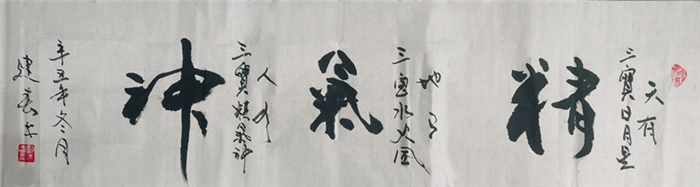 天有
三寶日月星
精
地有
三宝水火风
氣
人有
三寶精氣神
神
辛丑年冬月